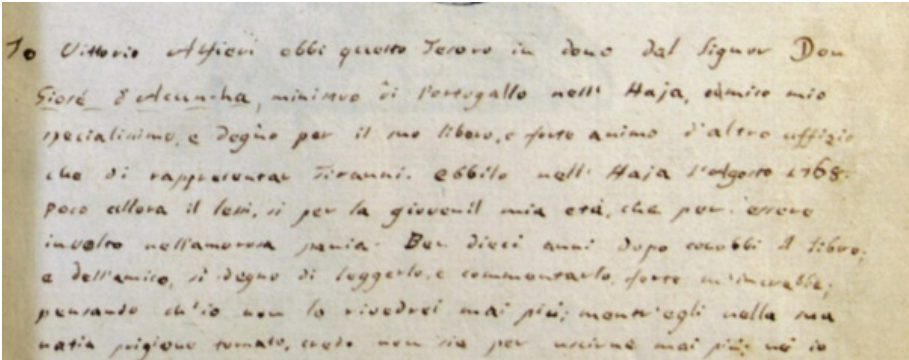 Io Vittorio Alfieri ebbi questo Tesoro in dono dal Signor Don
Giosé d'Acuncha, ministro di Portogallo nell' Haja, amico mio
specialissimo, e degno per il suo libero, e forte animo d'altro uffizio
che di rappresentar Tiranni. ebbilo nell' Haja l'Agosto 1768.
poco allora il lessi, sì per la giovenil mia età, che per essere
involto nell'amorosa pania. Ben dieci anni dopo conobbi il libro;
e dell'amico, sì degno di leggerlo, e commentarlo, forte m'increbbe;
pensando ch'io non lo rivedrei mai più; mentr'egli nella sua
natia prigione tornato, credo non sia per uscirne mai più; né io